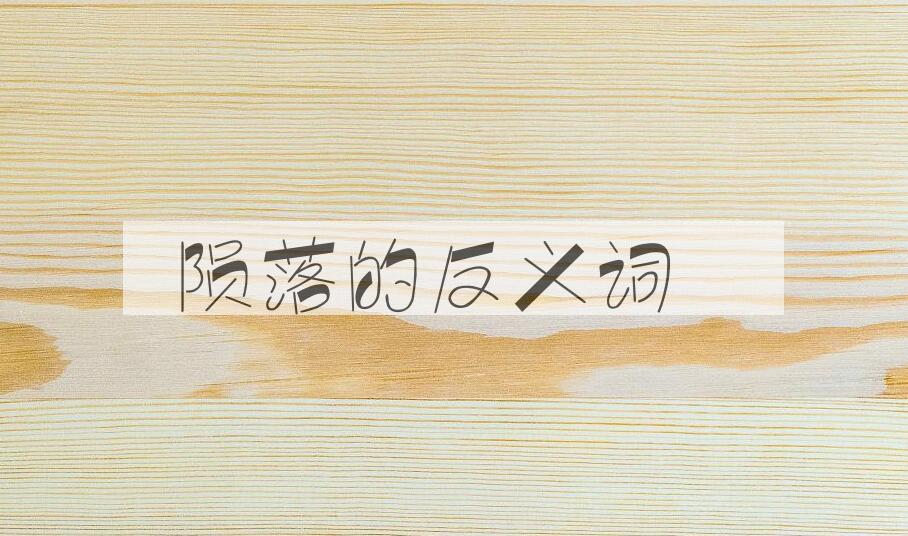 陨落的反义词